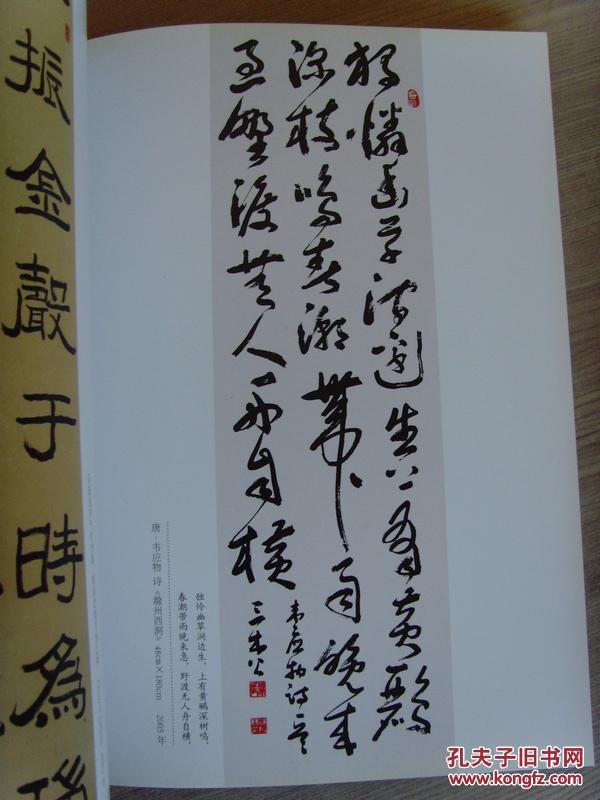 独憐幽草澗邊生上有黄鸝
深樹鳴春潮帶雨晚来
急野渡無人舟自横
韦应物诗
独怜幽草涧边生，上有黄鹂深树鸣。
春潮带雨晚来急，野渡无人舟自横。
唐·韦应物 诗《滁州西涧》 48cm×180cm 2005年
振金聲于時為
孔夫子旧书网
www.kongfz.com